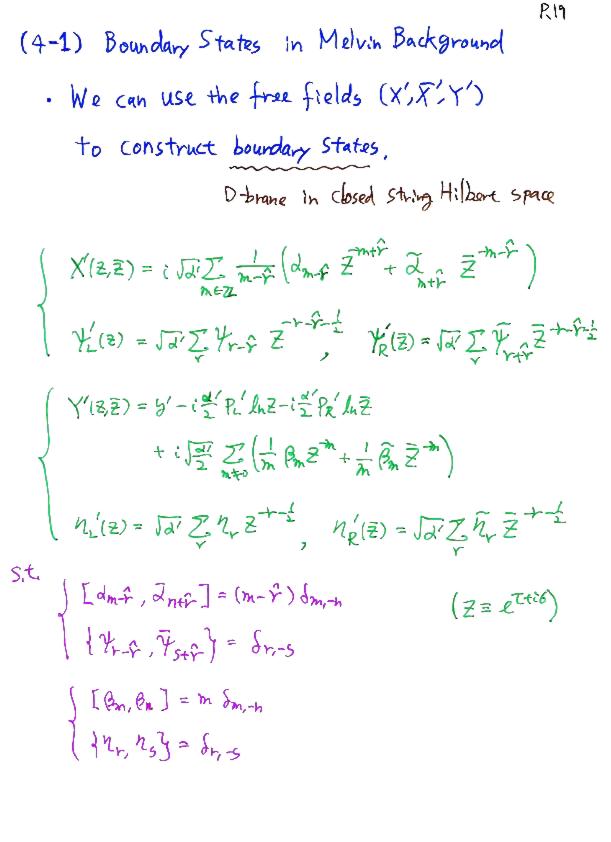 P.19
(4-1) Boundary States in Melvin Background
• We can use the free fields (X', X̄', Y')
to construct boundary states.
D-brane in closed string Hilbert space
X'(z,z̄) = i√α' Σ_{m∈ℤ} 1/(m-γ̂) (α_{m-γ̂} z^{-m+γ̂} + α̃_{m+γ̂} z̄^{-m-γ̂})
ψ'_L(z) = √α' Σ_r ψ_{r-γ̂} z^{-r-γ̂-1/2}, ψ'_R(z̄) = √α' Σ_r ψ̃_{r+γ̂} z̄^{-r-γ̂-1/2}
Y'(z,z̄) = y' - i α'/2 P_L' ln z - i α'/2 P_R' ln z̄
+ i√(α'/2) Σ_{m≠0} (1/m β_m z^{-m} + 1/m β̃_m z̄^{-m})
η'_L(z) = √α' Σ_r η_r z^{-r-1/2}, η'_R(z̄) = √α' Σ_r η̃_r z̄^{-r-1/2}
s.t.
[α_{m-γ̂}, ᾱ_{n+γ̂}] = (m-γ̂) δ_{m,-n} (z ≡ e^{τ+iσ})
{ψ_{r-γ̂}, ψ̄_{s+γ̂}} = δ_{r,-s}
[β_m, β_n] = m δ_{m,-n}
{η_r, η_s} = δ_{r,-s}